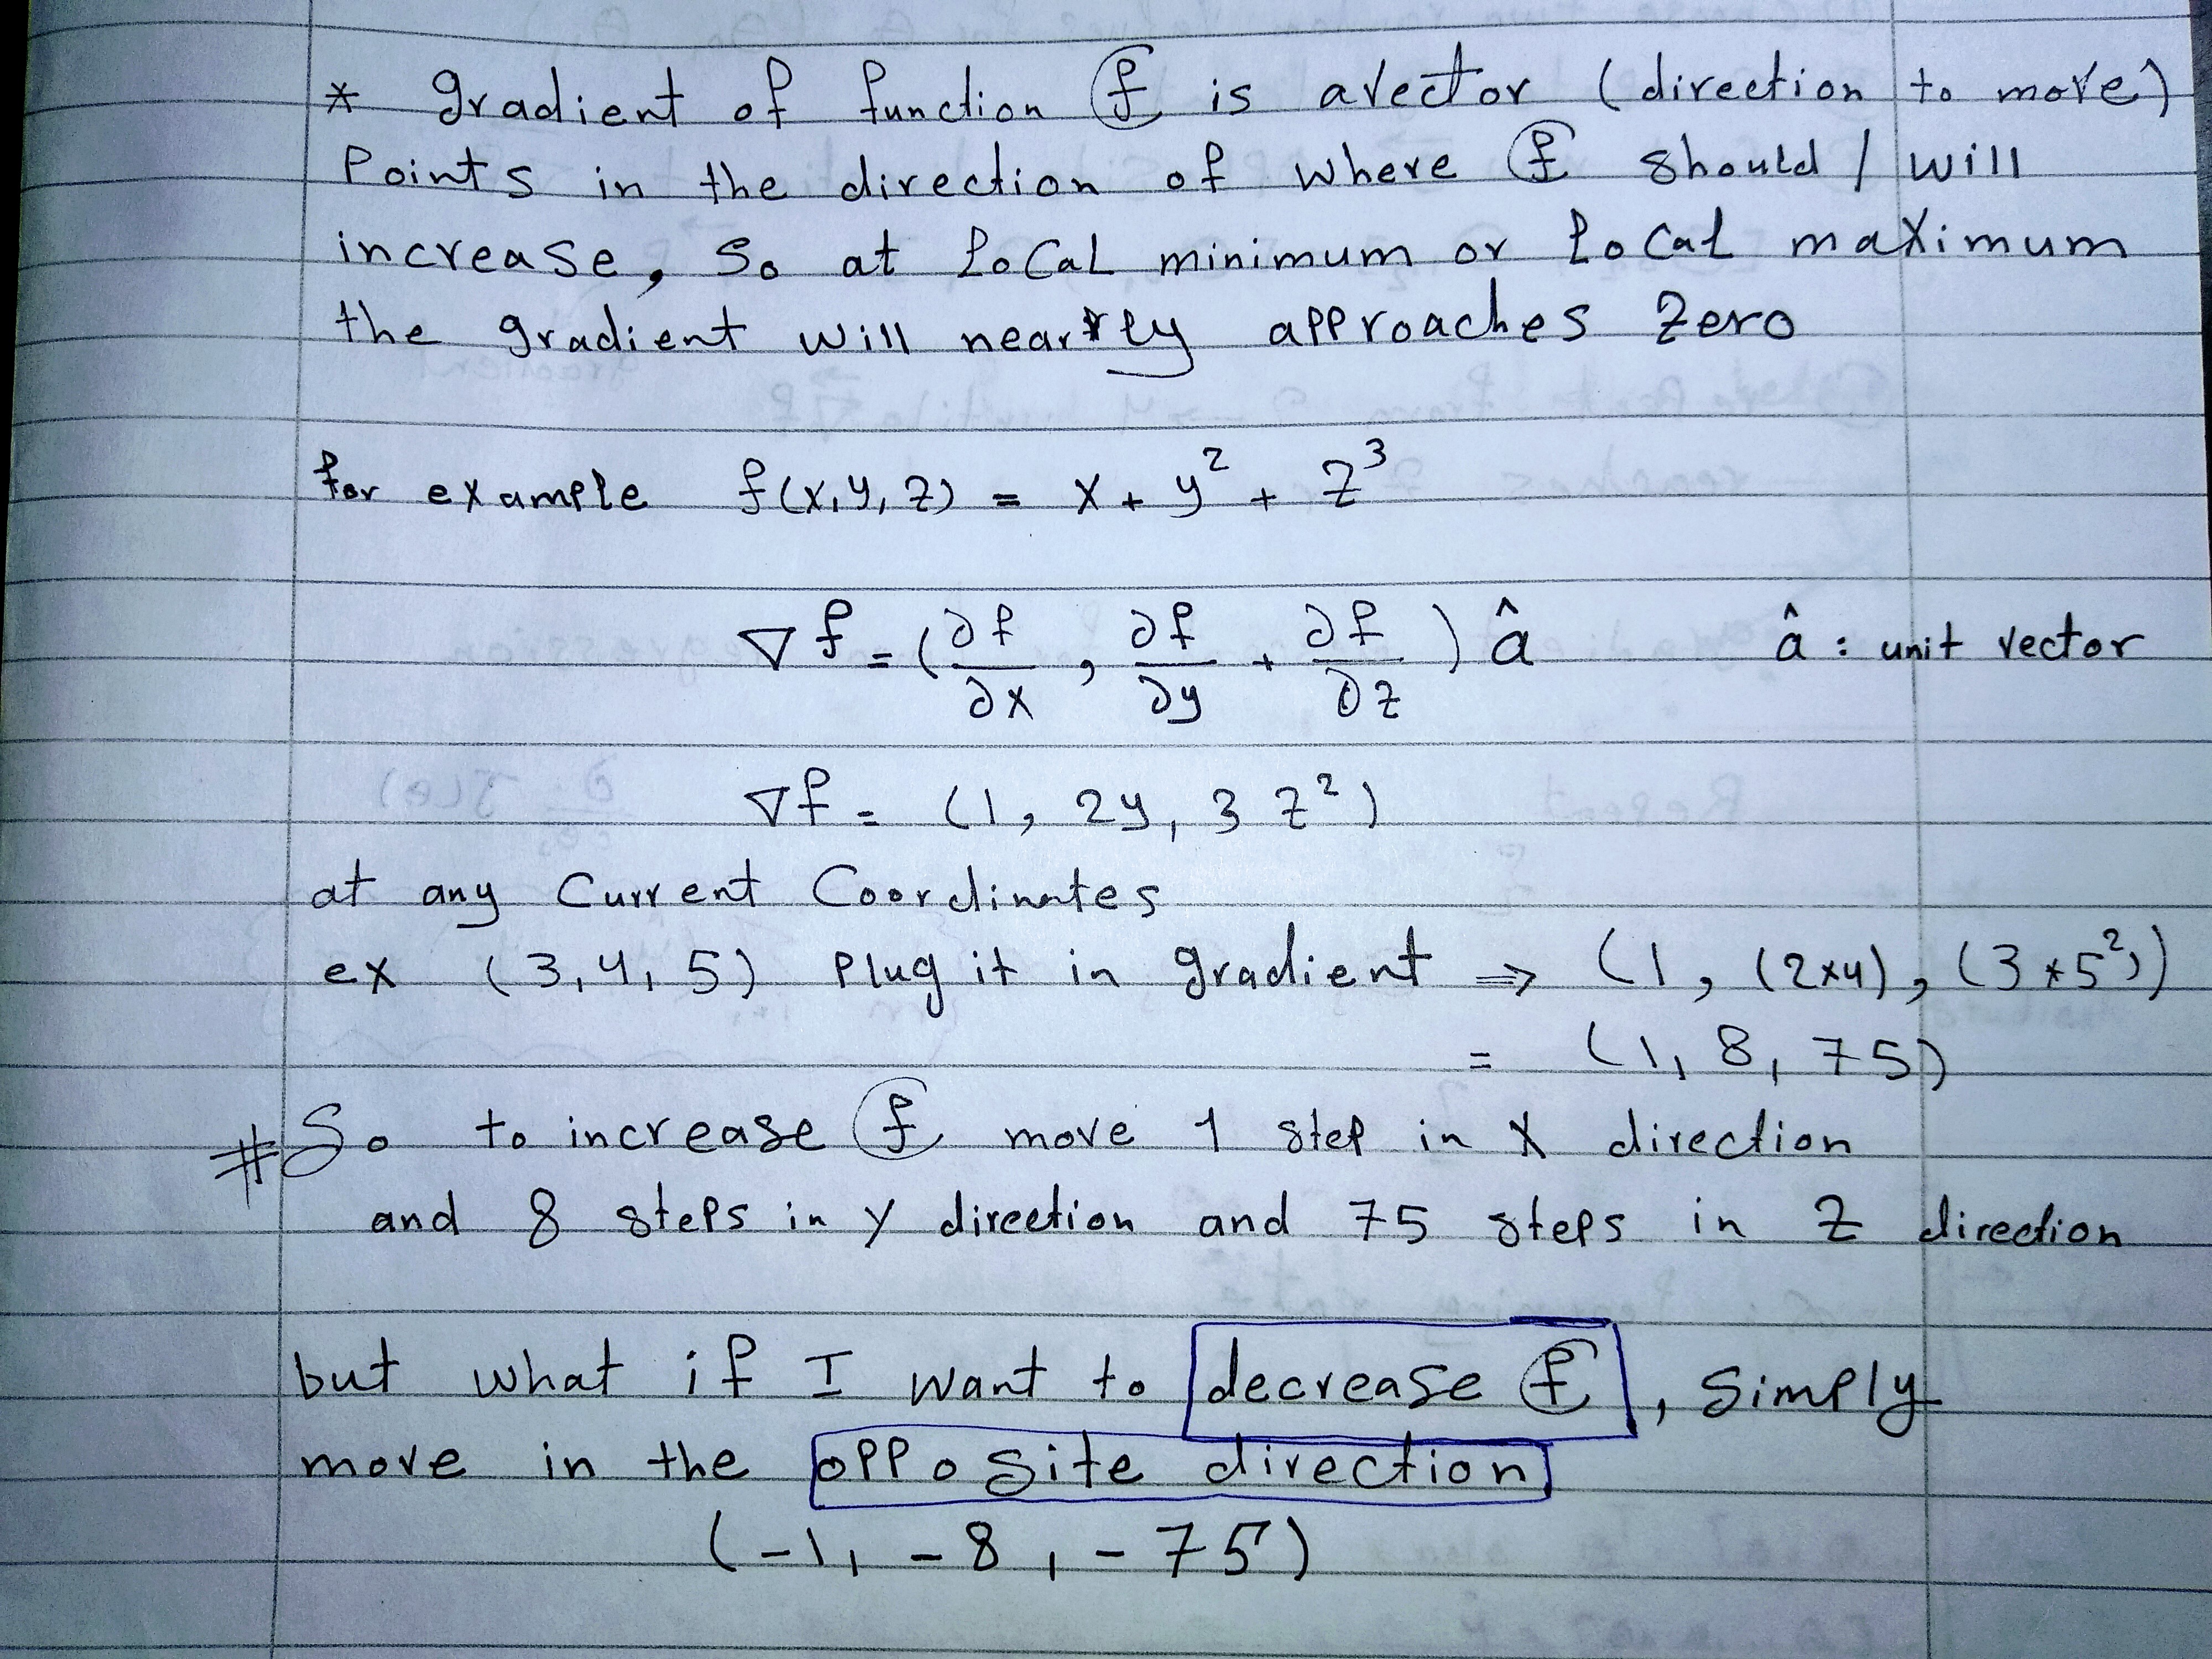 * gradient of function f is a vector (direction to move)
Points in the direction of where f should / will
increase, So at Local minimum or Local maximum
the gradient will nearly approaches Zero
for example f(x,y,z) = x + y² + z³
∇f = (∂f/∂x , ∂f/∂y + ∂f/∂z) â     â : unit vector
∇f = (1, 2y, 3 z²)
at any Current Coordinates
ex (3,4,5) Plug it in gradient ⇒ (1, (2*4), (3*5²))
= (1, 8, 75)
# So to increase f move 1 step in X direction
and 8 steps in Y direction and 75 steps in Z direction
but what if I want to decrease f, Simply
move in the opposite direction
(-1, -8, -75)